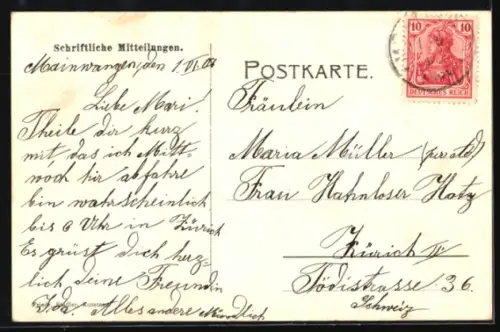 Schriftliche Mitteilungen.
Mainwangen, den 1. VI. 08
Liebe Mari!
Theile dir kurz
mit, das ich Mitt-
woch hir abfahre
bin wahrscheinlich
bis 6 Uhr in Zürich
Es grüst Dich herz-
lich deine Freundin
Ida. Alles andere Mündlich
POSTKARTE.
Fräulein
Maria Müller
Frau Hahnloser Hotz
Zürich IV
Tödistrasse 36.
Schweiz
10 10
DEUTSCHES REICH